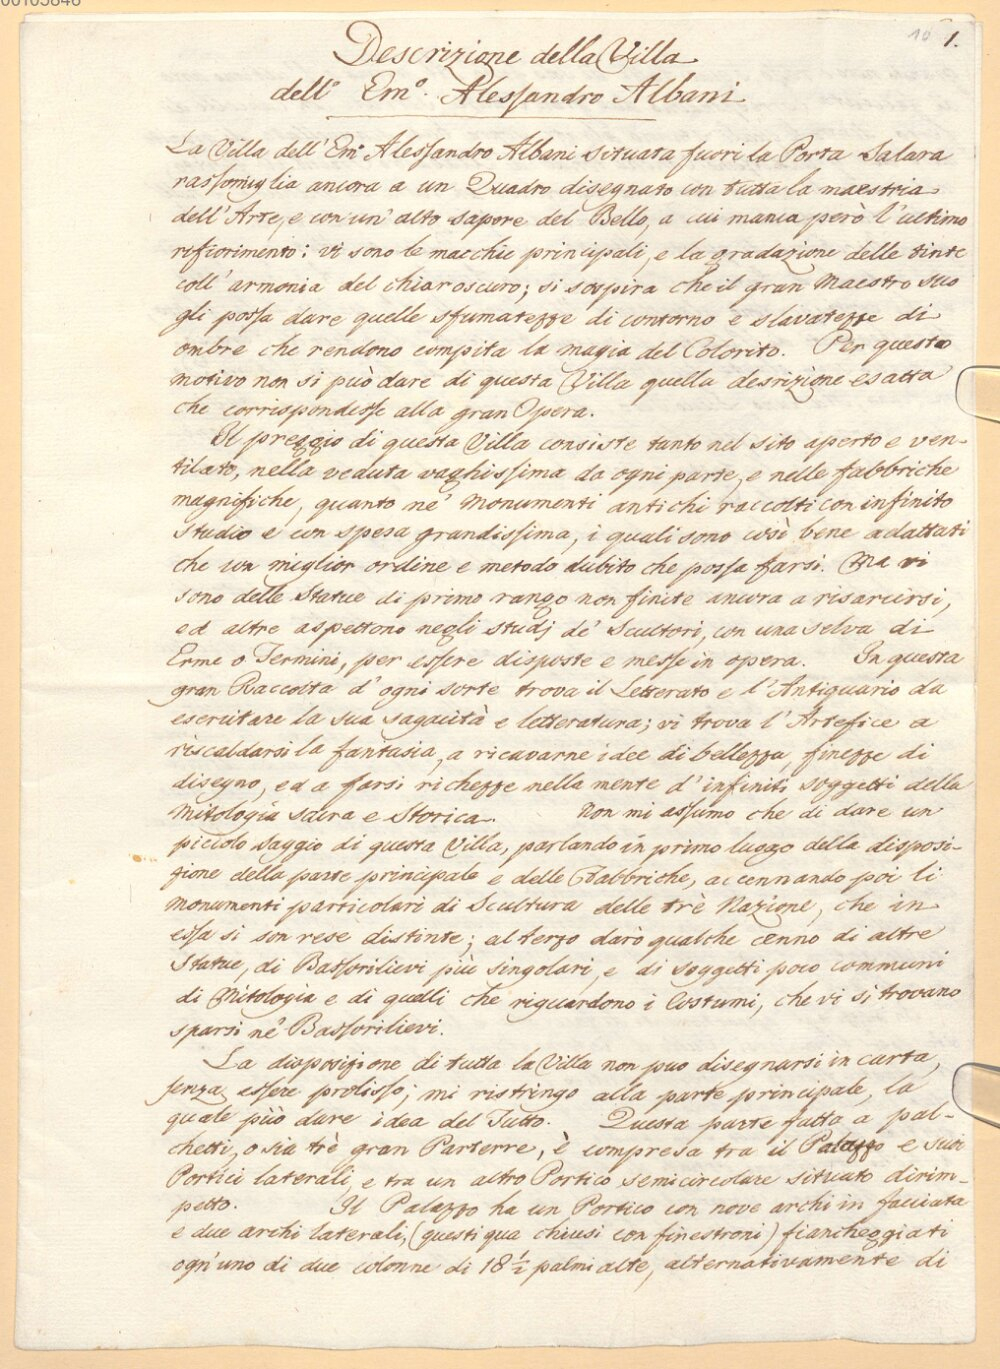 00105846
10 1.
Descrizione della Villa
dell' Em.º Alessandro Albani
La Villa dell' Emº Alessandro Albani situata fuori la Porta Salara
rassomiglia ancora a un Quadro disegnato con tutta la maestria
dell' Arte, e con un' alto sapore del Bello, a cui manca però l'ultimo
rifiorimento: vi sono le macchie principali, e la gradazione delle tinte
coll' armonia del chiaroscuro; si sospira che il gran Maestro suo
gli possa dare quelle sfumatezze di contorno e slavatezze di
ombre che rendono compita la magia del Colorito. Per questo
motivo non si può dare di questa Villa quella desrizione esatta
che corrispondesse alla gran Opera.
Il preggio di questa Villa consiste tanto nel sito aperto e ven-
tilato, nella veduta vaghissima da ogni parte, e nelle fabbriche
magnifiche, quanto ne' Monumenti antichi raccolti con infinito
studio e con spesa grandissima, i quali sono così bene adattati
che un miglior ordine e metodo dubito che possa farsi. Ma vi
sono delle Statue di primo rango non finite ancora a risarcirsi,
ed altre aspettono negli studj de' Scultori, con una selva di
Erme o Termini, per essere disposte e messe in opera. In questa
gran Raccolta d' ogni sorte trova il Letterato e l'Antiquario da
esercitare la sua sagacità e letteratura; vi trova l'Artefice a
riscaldarsi la fantasia, a ricavarne idee di bellezza, finezze di
disegno, ed a farsi ricchezze nella mente d'infiniti soggetti della
Mitologia sacra e Storica. Non mi assumo che di dare un
picciolo saggio di questa Villa, parlando in primo luogo della disposi-
zione della parte principale e delle Fabbriche, accennando poi li
Monumenti particolari di Scultura delle trè Nazione, che in
essa si son rese distinte; al terzo darò qualche cenno di altre
Statue, di Bassorilievi più singolari, e di soggetti poco communi
di Mitologia e di quelli che riguardono i Costumi, che vi si trovano
sparsi ne' Bassorilievi.
La disposizione di tutta la Villa non puo disegnarsi in carta
senza essere prolisso; mi ristringo alla parte principale, la
quale può dare idea del Tutto. Questa parte fatta a pal-
chetti, o sia trè gran Parterre, è compresa tra il Palazzo e suoi
Portici laterali, e tra un altro Portico semicircolare situato dirim-
petto. Il Palazzo ha un Portico con nove archi in facciata
e due archi laterali, (questi qua chiusi con finestroni) fiancheggiati
ogn'uno di due colonne di 18½ palmi alte, alternativamente di